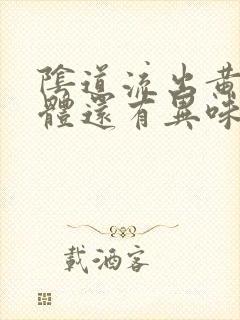 陰道流出黃
體還有異味
載酒客